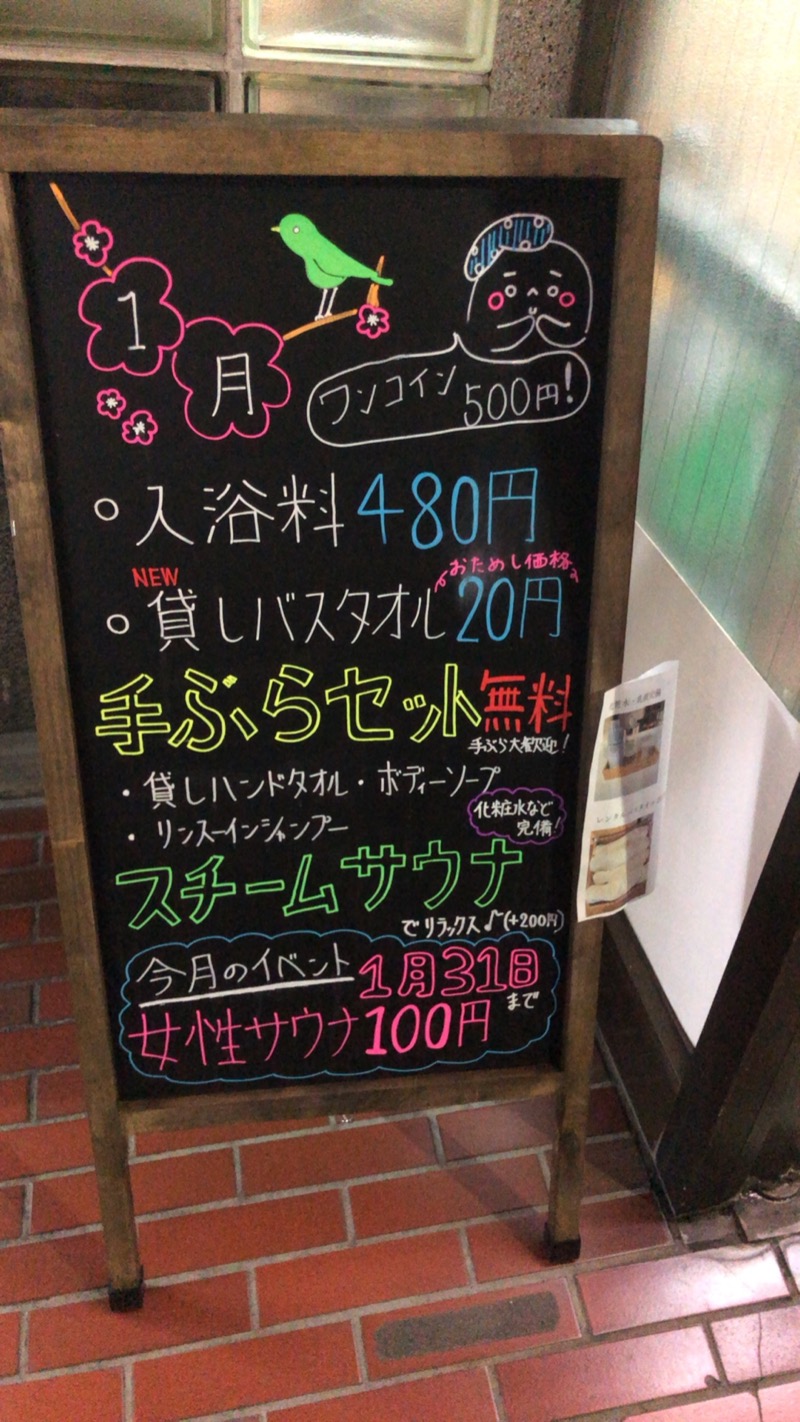 1月
ワンコイン500円!
○入浴料480円
NEW
おためし価格
○貸しバスタオル20円
手ぶらセット無料
手ぶら大歓迎!
・貸しハンドタオル・ボディーソープ
・リンスーインシャンプー
化粧水など
完備!
スチームサウナ
でリラックス♪(+200円)
今月のイベント1月31日
まで
女性サウナ100円